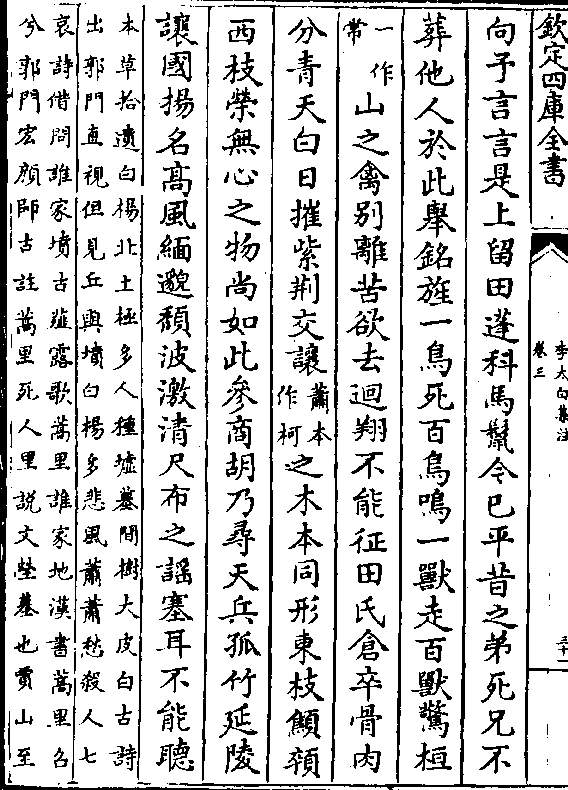 欽定四庫全書
李太白集注
卷三
三十二
向予言言是上留田蓬科馬鬣今已平昔之弟死兄不
葬他人於此舉銘旌一鳥死百鳥鳴一獸走百獸驚桓
一作常山之禽別離苦欲去迴翔不能征田氏倉卒骨肉
分青天白日摧紫荆交讓蕭本作柯之木本同形東枝顦顇
西枝榮無心之物尚如此參商胡乃尋天兵孤竹延陵
讓國揚名髙風緬邈頽波激清尺布之謡塞耳不能聽
本草拾遺白楊北土極多人種墟墓間樹大皮白古詩
出郭門直視但見丘與墳白楊多悲風蕭蕭愁殺人七
哀詩借問誰家墳古薤露歌蒿里誰家地漢書蒿里召
兮郭門宏顔師古註蒿里死人里説文塋墓也賈山至